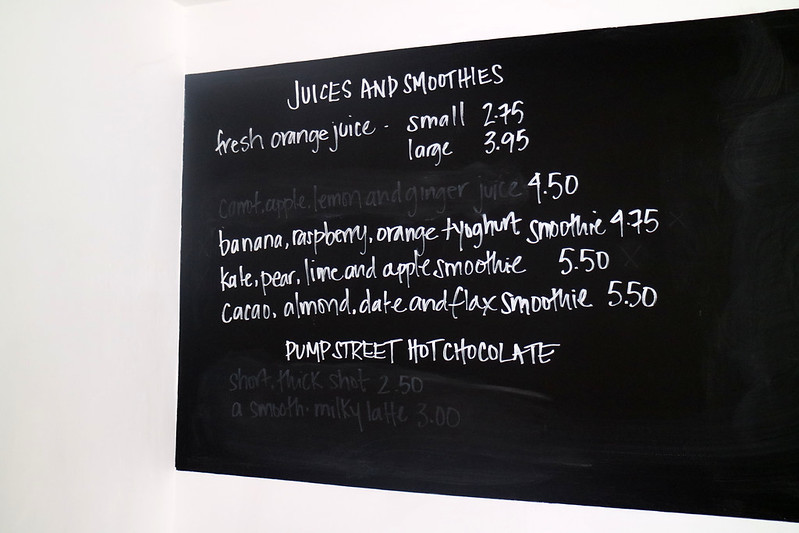 JUICES AND SMOOTHIES
fresh orange juice . small 2.75
large 3.95
carrot, apple, lemon and ginger juice 4.50
banana, raspberry, orange + yoghurt smoothie 4.75
kale, pear, lime and apple smoothie 5.50
cacao, almond, date and flax smoothie 5.50
PUMP STREET HOT CHOCOLATE
short, thick shot 2.50
a smooth, milky latte 3.00